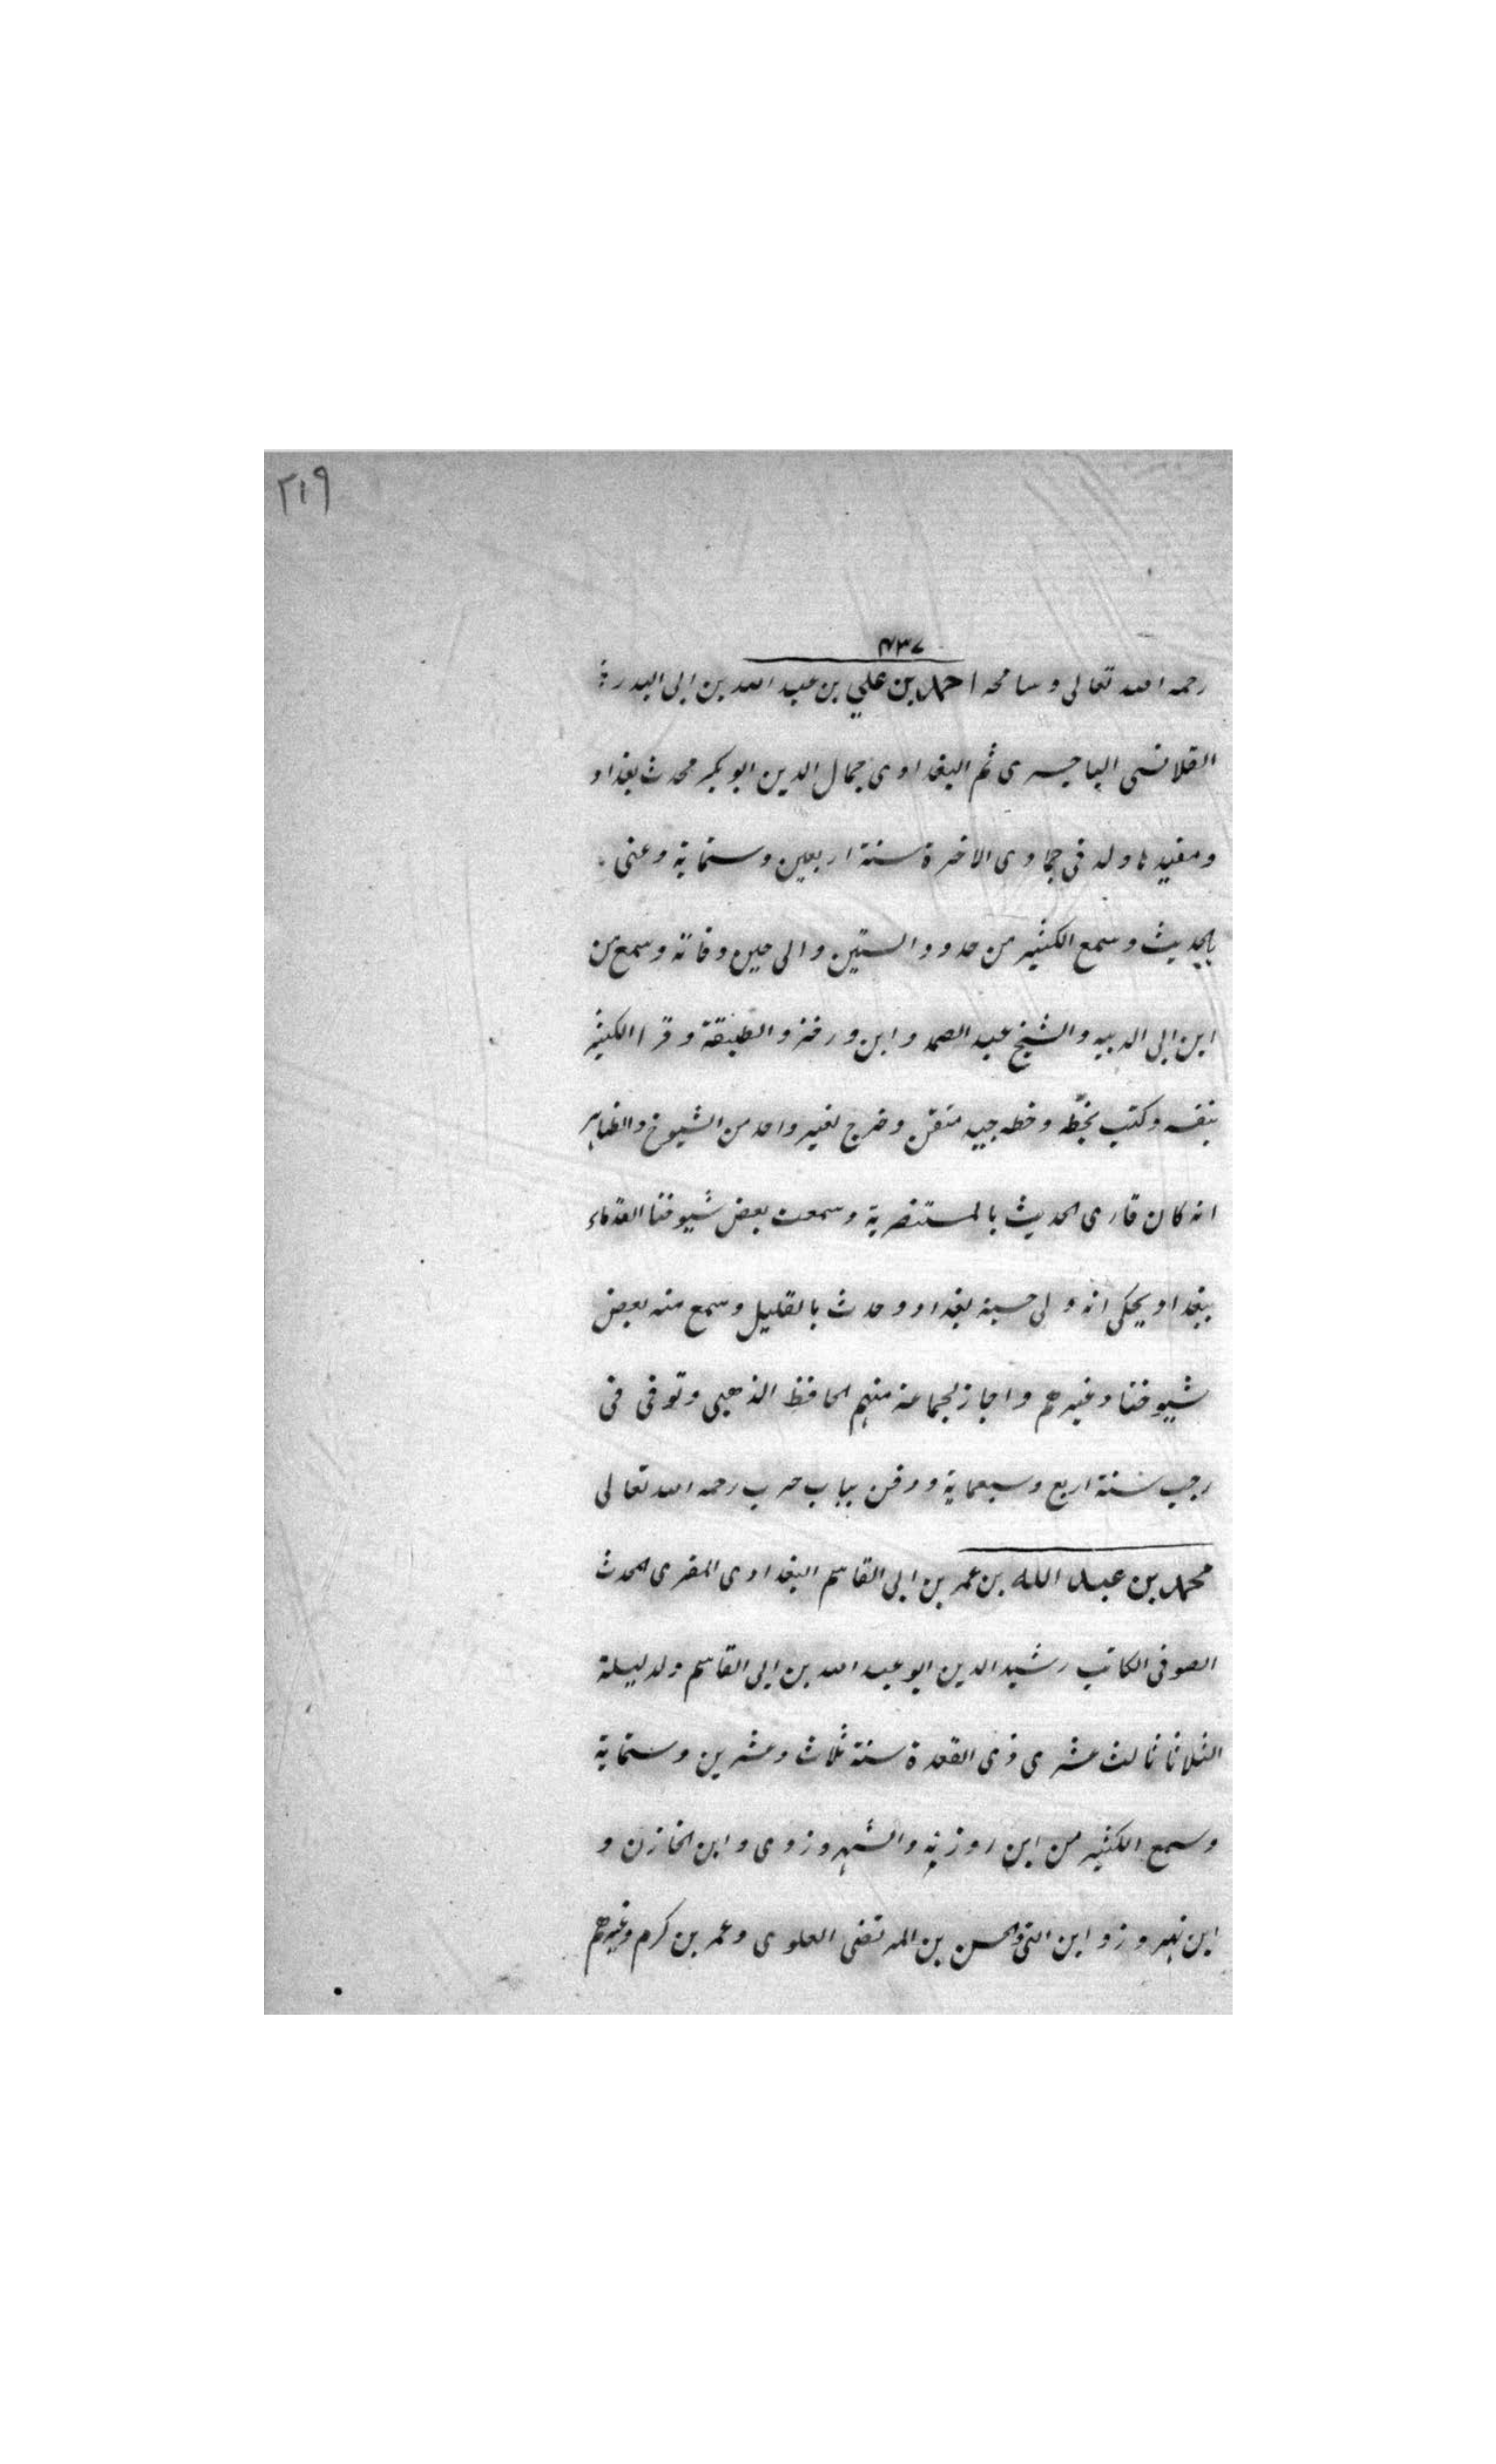 ٢١٩
٤٣٧
رحمه الله تعالى وسامحه احمد بن علي بن عبد الله بن ابى البدر
القلانسى الباجسرى ثم البغدادى جمال الدين ابو بكر محدث بغداد
ومفيدها ولد فى جمادى الاخرة سنة اربعين وستماية وعنى
بالحديث وسمع الكثير من حدود الستين والى حين وفاته وسمع من
ابن ابى الدينه والشيخ عبد الصمد وابن ورخز والطبقة وقرا الكثير
بنفسه وكتب بخطه وخطه جيد متقن وخرج لغير واحد من الشيوخ والظاهر
انه كان قارى الحديث بالمستنصرية وسمعت بعض شيوخنا القدماء
ببغداد يحكى انه ولى حسبة بغداد وحدث بالقليل وسمع منه بعض
شيوخنا وغيرهم واجاز لجماعة منهم الحافظ الذهبى وتوفى فى
رجب سنة اربع وسبعماية ودفن بباب حرب رحمه الله تعالى
محمد بن عبد الله بن عمر بن ابى القاسم البغدادى المقرى المحدث
الصوفى الكاتب رشيد الدين ابو عبد الله بن ابى القاسم ولد ليلة
الثلاثا ثالث عشرى ذى القعدة سنة ثلاث وعشرين وستماية
وسمع الكثير من ابن روزبه والشهروزوى وابن الخازن و
ابن بهروز وابن اللتى والحسن بن المرتضى العلوى وعمر بن كرم وغيرهم